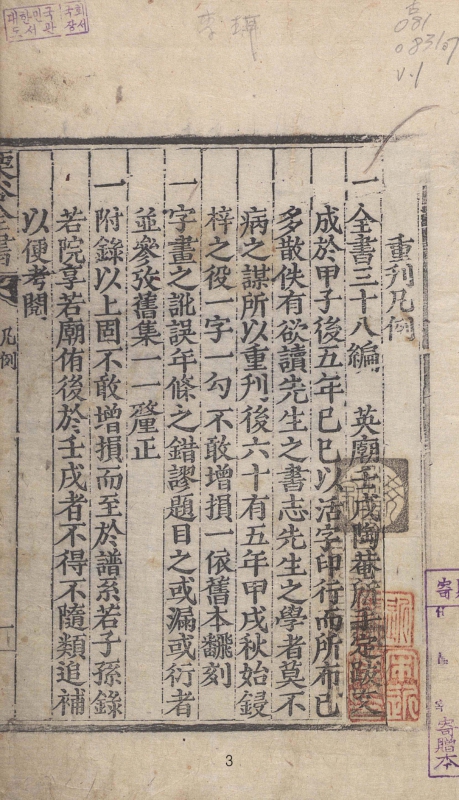 대한민국 국회
도서관 장서
李珥
081
v.1
重刊凡例
一 全書三十八編 英廟壬戌陶菴所手定跋文
成於甲子後五年己巳以活字印行而所布已
多散佚有欲讀先生之書志先生之學者莫不
病之謀所以重刊後六十有五年甲戌秋始鋟
梓之役一字一勾不敢增損一依舊本翻刻
一 字畫之訛誤年條之錯謬題目之或漏或衍者
並參攷舊集一一釐正
一 附錄以上固不敢增損而至於譜系若子孫錄
若院享若廟侑後於壬戌者不得不隨類追補
以便考閱
栗谷全書
凡例
寄贈本
3